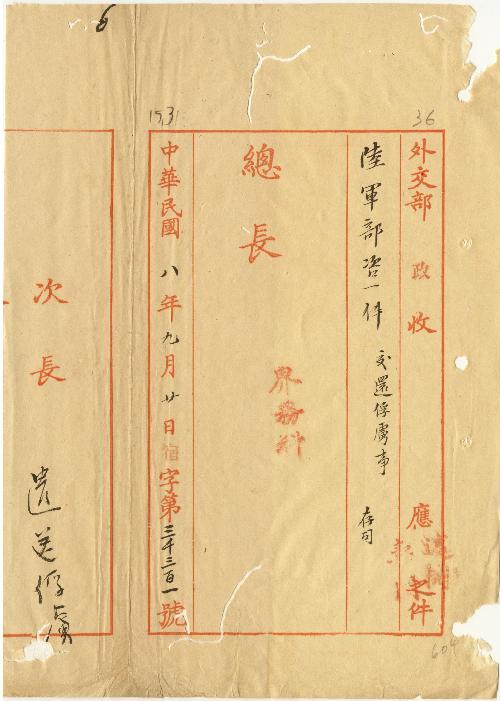 6
36
外交部 政 收 應 之件
陸軍部咨一件 交還俘虜事 存司
總長
界務科
1531
中華民國八年九月廿日宿字第三千三百一號
次長
遣送俘虜
604